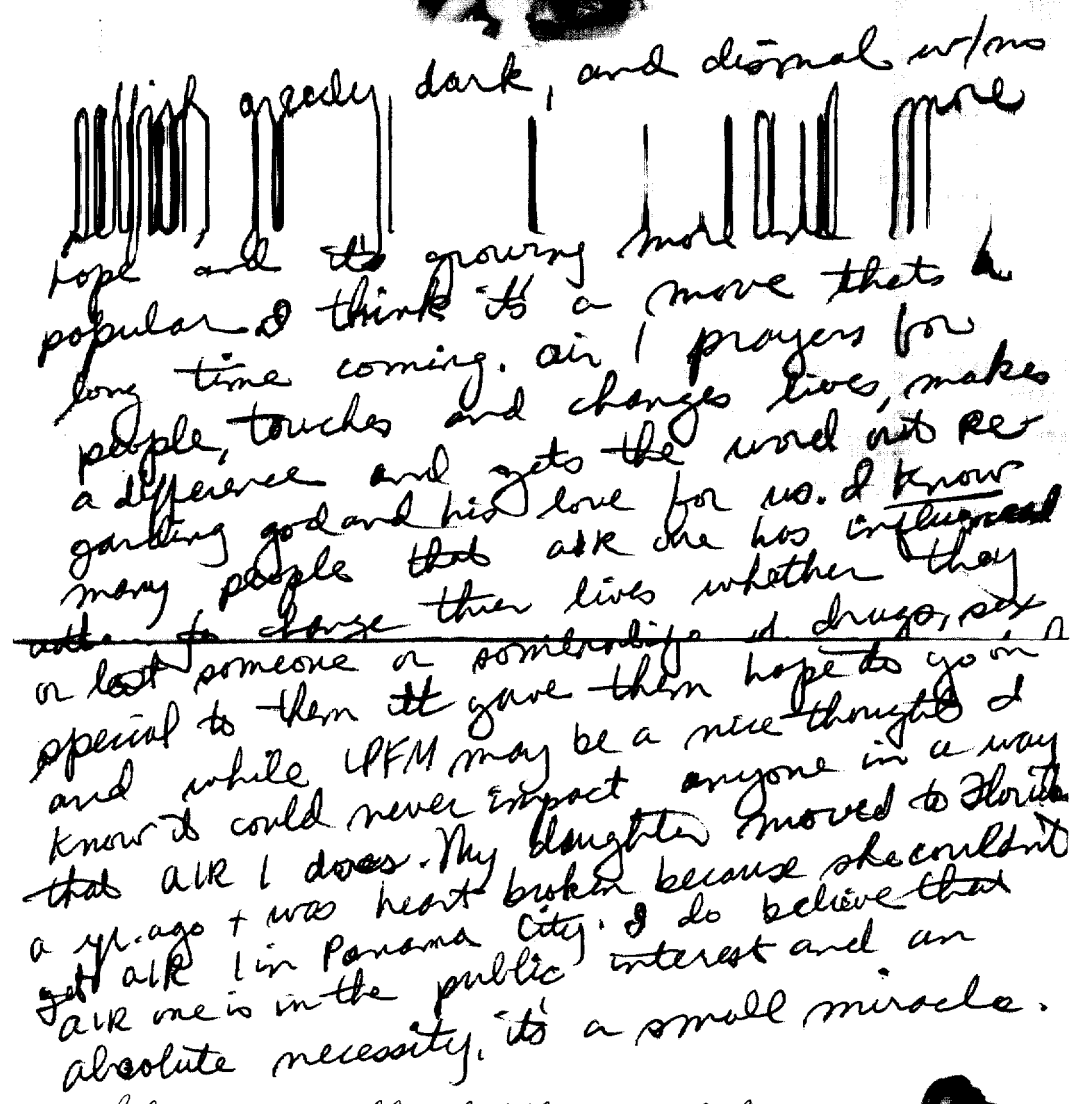 selfish greedy, dark, and dismal w/no
more
hope and it's growing more and
popular I think it's a move thats a
long time coming. air 1 prayers for
people, touches and changes lives, makes
a difference and gets the word out re-
garding god and his love for us. I know
many people that aIR one has influenced
to change thier lives whether they
drugs, sex
or lost someone or something
special to them it gave them hope to go on
and while LPFM may be a nice thought I
know it could never impact anyone in a way
that aIR 1 does. My daughter moved to Florida
a yr. ago + was heart broken because she couldn't
get aIR 1 in Panama City. I do believe that
aIR one is in the public interest and an
absolute necessity, it's a small miracle.